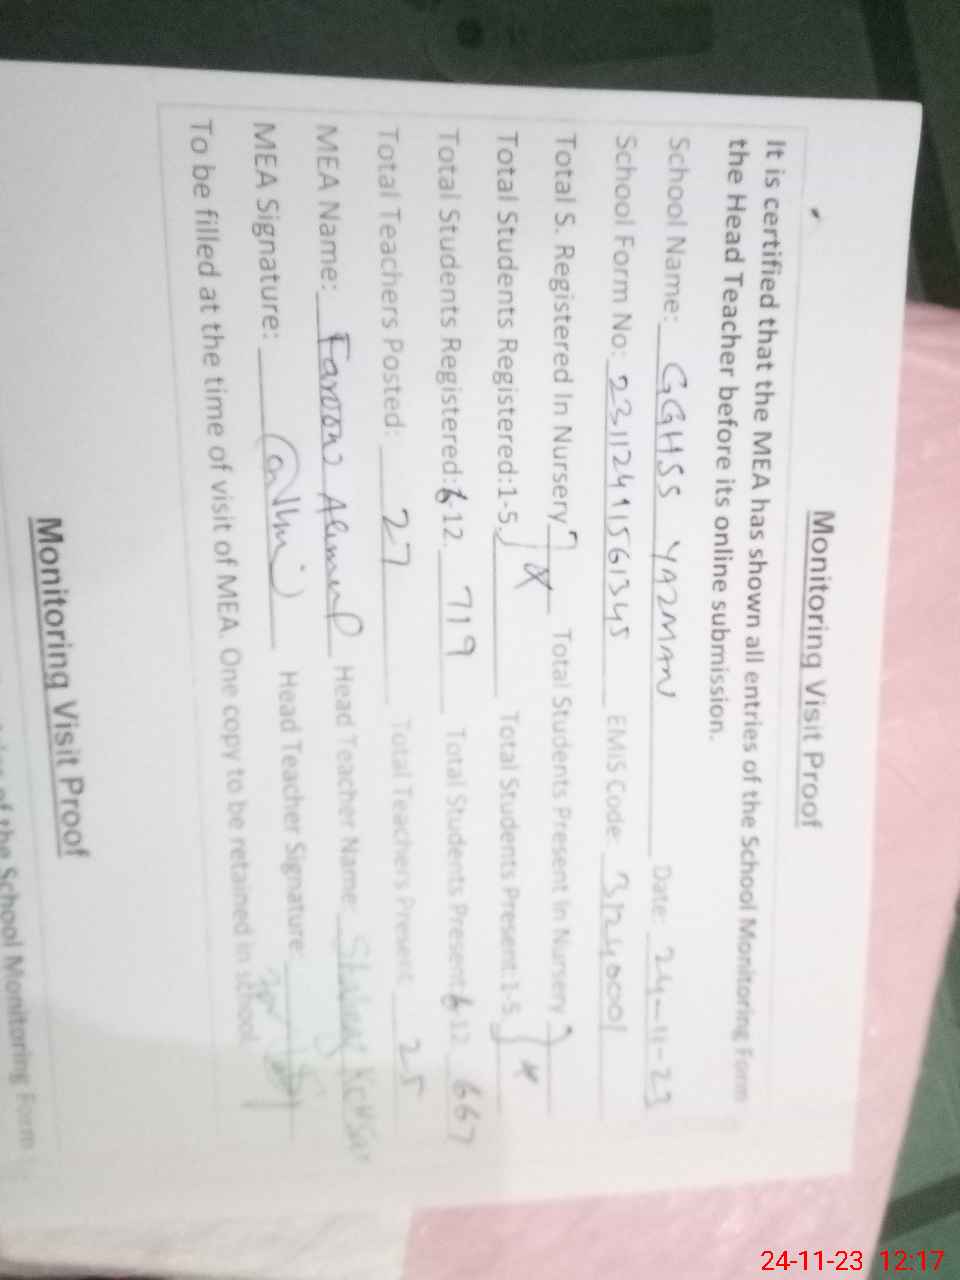 Monitoring Visit Proof
It is certified that the MEA has shown all entries of the School Monitoring Form
the Head Teacher before its online submission.
School Name: GGHSS YAZMAN Date: 24-11-23
School Form No: 23112491561345 EMIS Code: 31240001
Total S. Registered In Nursery Total Students Present In Nursery
Total Students Registered:1-5 Total Students Present:1-5
Total Students Registered:6-12 719 Total Students Present 6-12 667
Total Teachers Posted: 27 Total Teachers Present: 25
MEA Name: Farooq Ahmed Head Teacher Name: Kausar
MEA Signature: Head Teacher Signature:
To be filled at the time of visit of MEA. One copy to be retained in school
Monitoring Visit Proof
of the School Monitoring Form
24-11-23 12:17